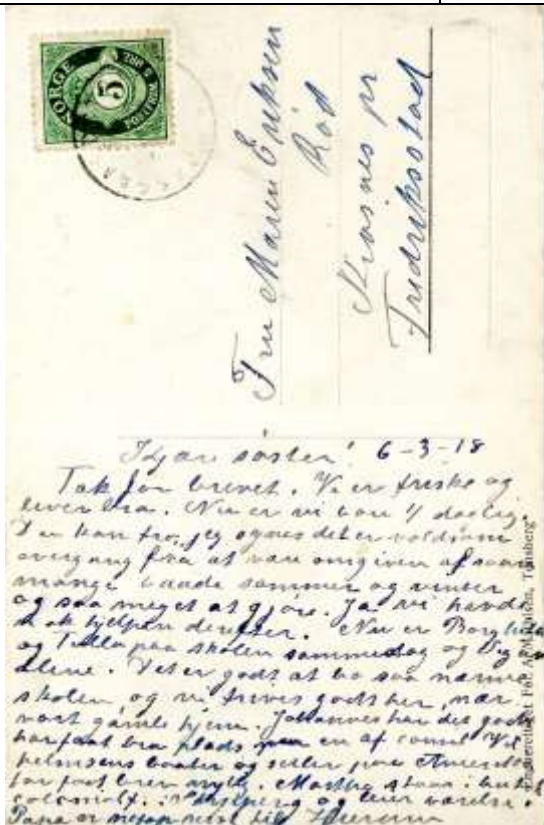 NORGE
5
Fru Maren Eriksen
Rød
Kraakerøy pr
Fredriksstad
Kjære søster! 6-3-18
Tak for brevet. Vi er friske og
lever bra. Nu er vi bare 4 daglig
Du kan tro, jeg synes det er voldsom
overgang fra at være omgiven af saa
mange baade sommer og vinter
og saa meget at gjøre. Ja vi havde
nok hjelpen derefter. Nu er Borghild
og Tulla paa skolen sammedag og jeg er
alene. Det er godt at bo saa nærme
skolen og vi trives godt her, nær
vort gamle hjem. Johannes har det godt
har faat bra plads paa en af consul Wil
helmsens baater og seiler paa Amerika
for faat brev nylig. Martha staar i butik
i Tønsberg og leier værelse.
Papa er
Eneberettiget For A. Mathisen, Tønsberg